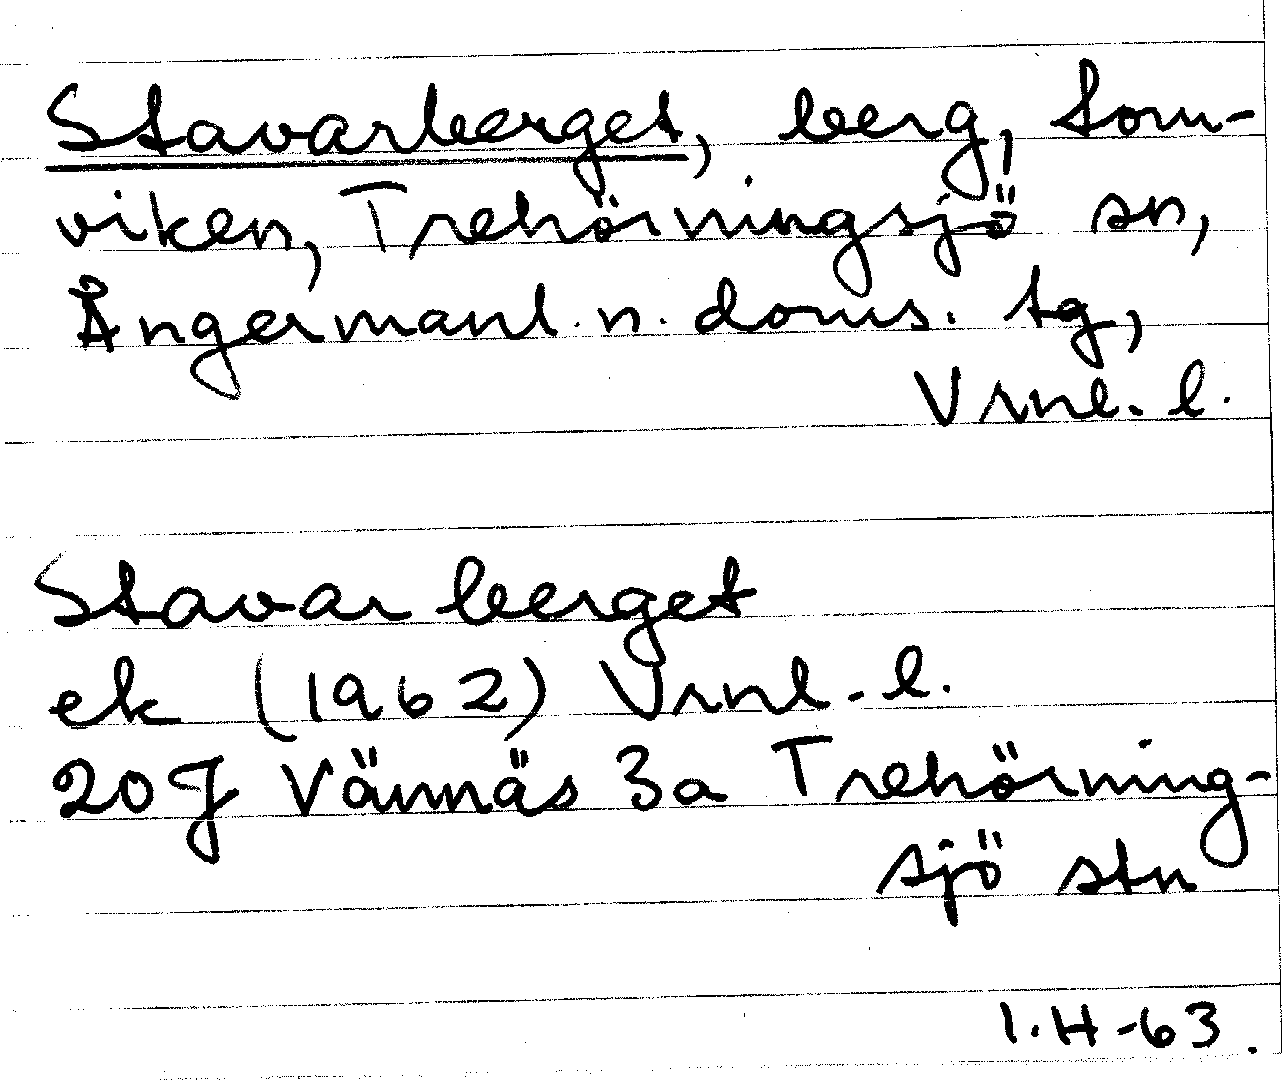 Stavarberget, berg, Som-
viken, Trehörningsjö sn,
Ångermanl. n. doms. tg,
Vrnl. l.
Stavarberget
ek (1962) Vrnl. l.
20J Vännäs 3a Trehörning-
sjö stn
I.H-63.